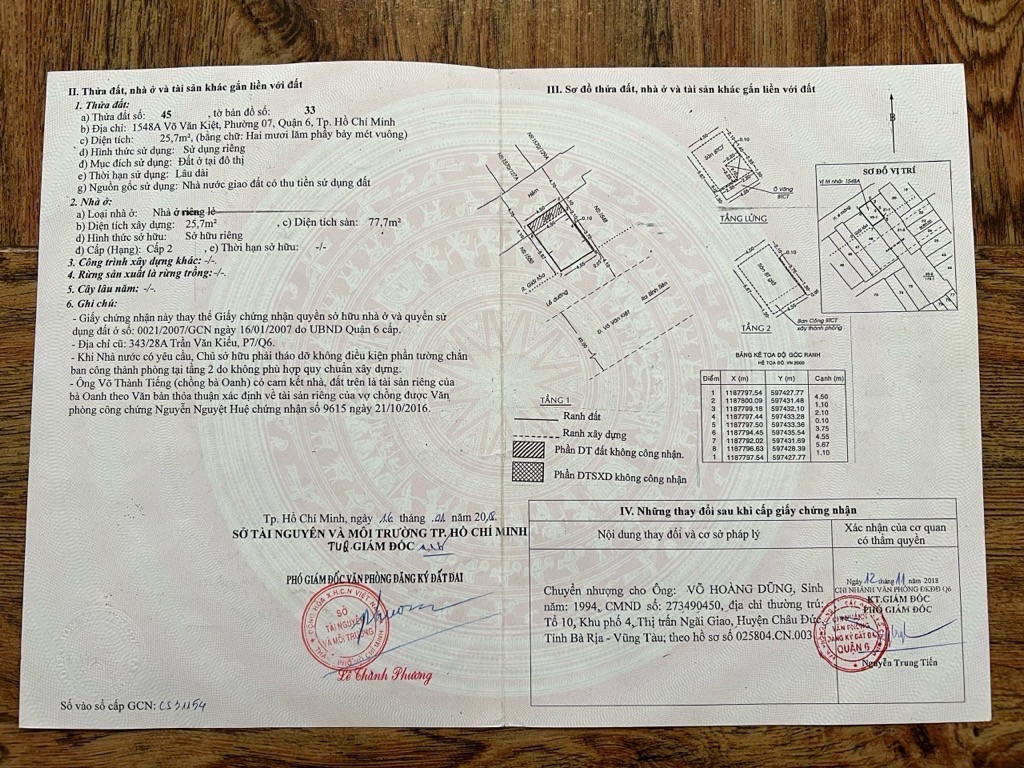 II. Thửa đất, nhà ở và tài sản khác gắn liền với đất
1. Thửa đất:
a) Thửa đất số: 45 , tờ bản đồ số: 33
b) Địa chỉ: 1548A Võ Văn Kiệt, Phường 07, Quận 6, Tp. Hồ Chí Minh
c) Diện tích: 25,7m², (bằng chữ: Hai mươi lăm phẩy bảy mét vuông)
d) Hình thức sử dụng: Sử dụng riêng
đ) Mục đích sử dụng: Đất ở tại đô thị
e) Thời hạn sử dụng: Lâu dài
g) Nguồn gốc sử dụng: Nhà nước giao đất có thu tiền sử dụng đất
2. Nhà ở:
a) Loại nhà ở: Nhà ở riêng lẻ
b) Diện tích xây dựng: 25,7m² , c) Diện tích sàn: 77,7m²
d) Hình thức sở hữu: Sở hữu riêng
đ) Cấp (Hạng): Cấp 2 , e) Thời hạn sở hữu: -/-
3. Công trình xây dựng khác: -/-.
4. Rừng sản xuất là rừng trồng:-/-.
5. Cây lâu năm: -/-.
6. Ghi chú:
- Giấy chứng nhận này thay thế Giấy chứng nhận quyền sở hữu nhà ở và quyền sử
dụng đất ở số: 0021/2007/GCN ngày 16/01/2007 do UBND Quận 6 cấp.
- Địa chỉ cũ: 343/28A Trần Văn Kiểu, P7/Q6.
- Khi Nhà nước có yêu cầu, Chủ sở hữu phải tháo dỡ không điều kiện phần tường chắn
ban công thành phòng tại tầng 2 do không phù hợp quy chuẩn xây dựng.
- Ông Võ Thành Tiếng (chồng bà Oanh) có cam kết nhà, đất trên là tài sản riêng của
bà Oanh theo Văn bản thỏa thuận xác định về tài sản riêng của vợ chồng được Văn
phòng công chứng Nguyễn Nguyệt Huệ chứng nhận số 9615 ngày 21/10/2016.
Tp. Hồ Chí Minh, ngày 16 tháng 01 năm 2018
SỞ TÀI NGUYÊN VÀ MÔI TRƯỜNG TP. HỒ CHÍ MINH
TUQ.GIÁM ĐỐC
PHÓ GIÁM ĐỐC VĂN PHÒNG ĐĂNG KÝ ĐẤT ĐAI
SỞ
TÀI NGUYÊN
VÀ MÔI TRƯỜNG
Lê Thành Phương
Số vào sổ cấp GCN: CS31154
III. Sơ đồ thửa đất, nhà ở và tài sản khác gắn liền với đất
B
Hẻm
R. Giải tỏa
Lề đường
Đ. Võ Văn Kiệt
Ra Bình Tiên
TẦNG 1
Sàn BTCT
Ô văng
BTCT
TẦNG LỬNG
Sàn Bt giả
Ban Công BTCT
xây thành phòng
TẦNG 2
SƠ ĐỒ VỊ TRÍ
Vị trí nhà: 1548A
BẢNG KÊ TỌA ĐỘ GÓC RANH
HỆ TỌA ĐỘ: VN 2000
Điểm X (m) Y (m) Cạnh (m)
1 1187797.54 597427.77
4.50
2 1187800.09 597431.48
1.10
3 1187799.18 597432.10
2.10
4 1187797.44 597433.28
0.10
5 1187797.50 597433.36
3.75
6 1187794.45 597435.54
4.55
7 1187792.02 597431.69
5.67
8 1187796.63 597428.39
1.10
1 1187797.54 597427.77
Ranh đất
Ranh xây dựng
Phần DT đất không công nhận.
Phần DTSXD không công nhận
IV. Những thay đổi sau khi cấp giấy chứng nhận
Nội dung thay đổi và cơ sở pháp lý
Xác nhận của cơ quan
có thẩm quyền
Chuyển nhượng cho Ông: VÕ HOÀNG DŨNG, Sinh
năm: 1994, CMND số: 273490450, địa chỉ thường trú:
Tổ 10, Khu phố 4, Thị trấn Ngãi Giao, Huyện Châu Đức,
Tỉnh Bà Rịa - Vũng Tàu; theo hồ sơ số 025804.CN.003
Ngày 12 tháng 11 năm 2018
CHI NHÁNH VĂN PHÒNG ĐKĐĐ Q6
KT.GIÁM ĐỐC
PHÓ GIÁM ĐỐC
CHI NHÁNH
VĂN PHÒNG
ĐĂNG KÝ ĐẤT ĐAI
QUẬN 6
Nguyễn Trung Tiến